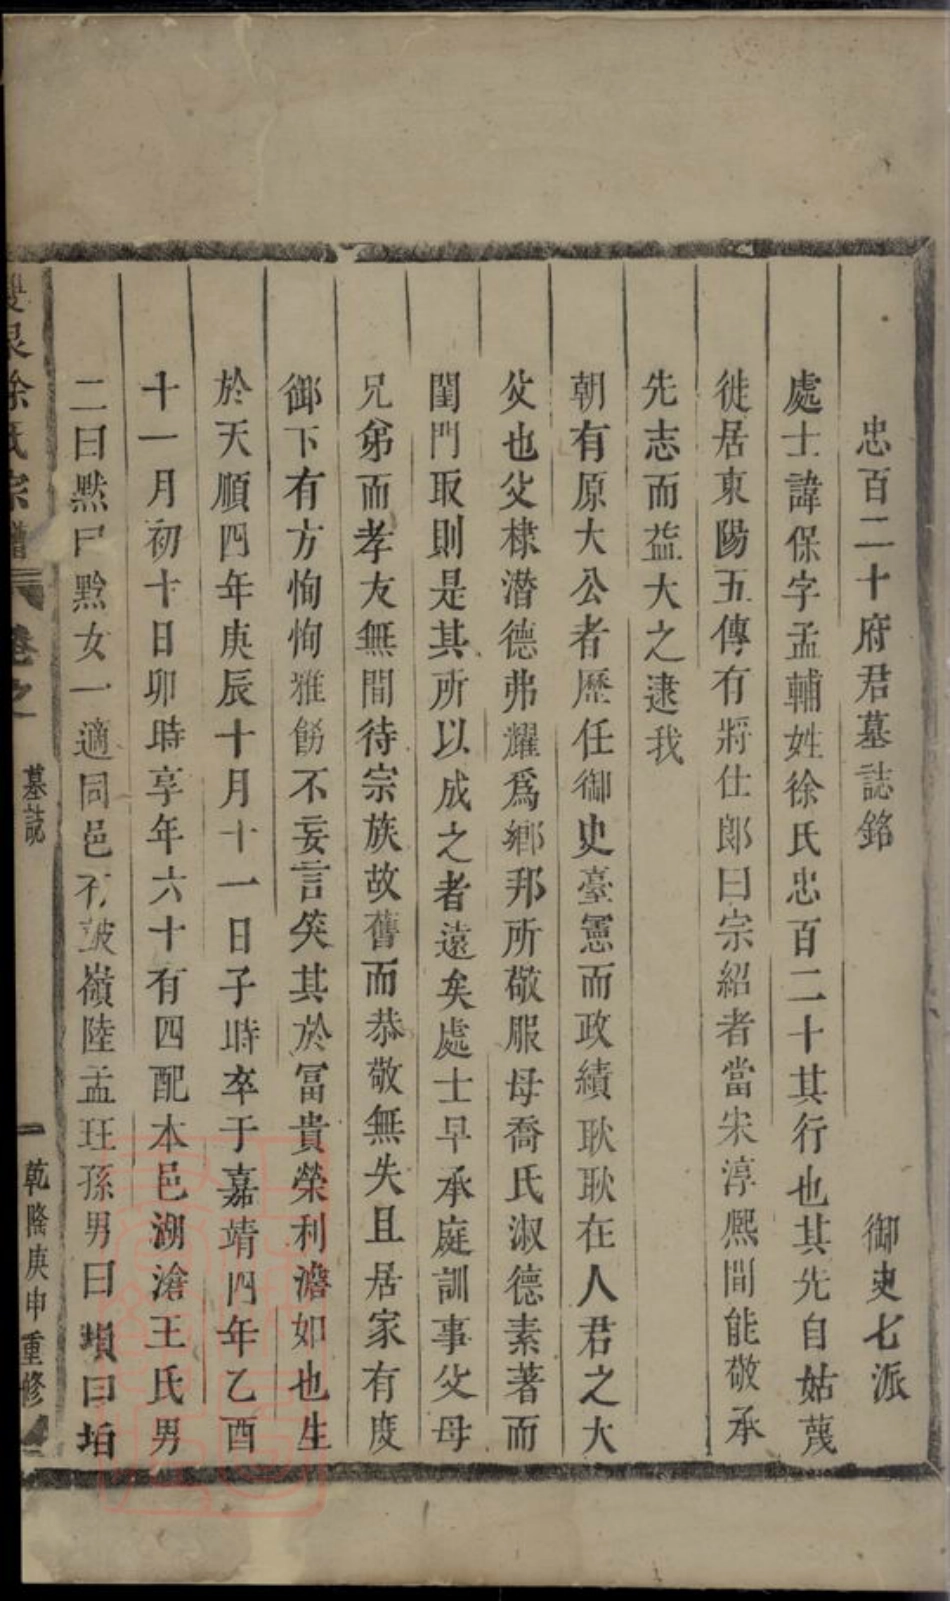 忠百二十府君墓誌銘 御史七派
處士諱保字孟輔姓徐氏忠百二十其行也其先自姑蔑
徙居東陽五傳有將仕郎曰宗紹者當宋淳熙間能敬承
先志而益大之逮我
朝有原大公者歷任御史臺憲而政績耿耿在人君之大
父也父棣潛德弗耀爲鄉邦所敬服母喬氏淑德素著而
閨門取則是其所以成之者遠矣處士早承庭訓事父母
兄弟而孝友無間待宗族故舊而恭敬無失且居家有度
御下有方恂恂雅飭不妄言笑其於冨貴榮利澹如也生
於天順四年庚辰十月十一日子時卒于嘉靖四年乙酉
十一月初十日卯時享年六十有四配本邑湖滄王氏男
二曰黙曰黔女一適同邑嶺陸孟玨孫男曰塤曰垍
徐氏宗譜 卷之 墓誌 一 乾隆庚申重修